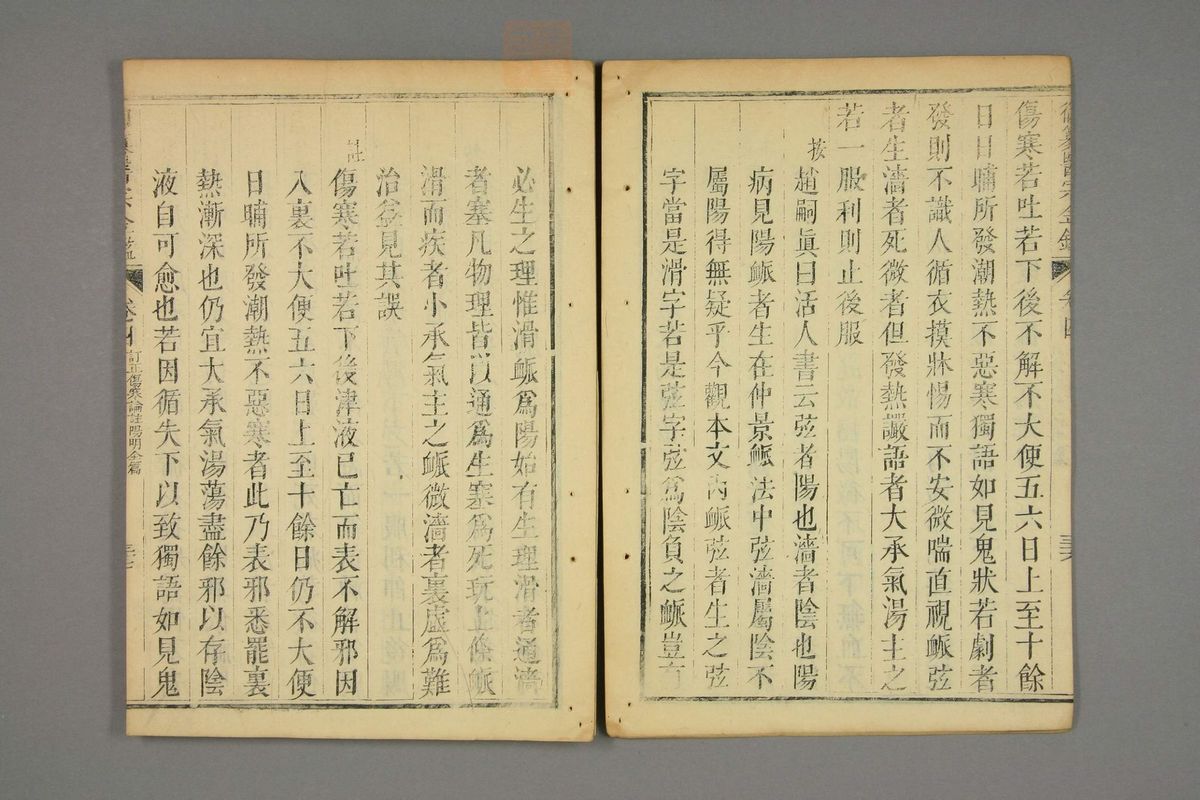 御纂醫宗金鑑 卷四 三六
傷寒若吐若下後不解不大便五六日上至十餘
日日晡所發潮熱不惡寒獨語如見鬼狀若劇者
發則不識人循衣摸牀惕而不安微喘直視𧖴弦
者生濇者死微者但發熱讝語者大承氣湯主之
若一服利則止後服
按
趙嗣眞曰活人書云弦者陽也濇者陰也陽
病見陽𧖴者生在仲景𧖴法中弦濇屬陰不
屬陽得無疑乎今觀本文內𧖴弦者生之弦
字當是滑字若是弦字弦爲陰負之𧖴豈有
必生之理惟滑𧖴爲陽始有生理滑者通濇
者塞凡物理皆以通爲生塞爲死玩上條𧖴
滑而疾者小承氣主之𧖴微濇者裏虛爲難
治益見其誤
註
傷寒若吐若下後津液已亡而表不解邪因
入裏不大便五六日上至十餘日仍不大便
日晡所發潮熱不惡寒者此乃表邪悉罷裏
熱漸深也仍宜大承氣湯蕩盡餘邪以存陰
液自可愈也若因循失下以致獨語如見鬼
卷四 訂正傷寒論註陽明全篇